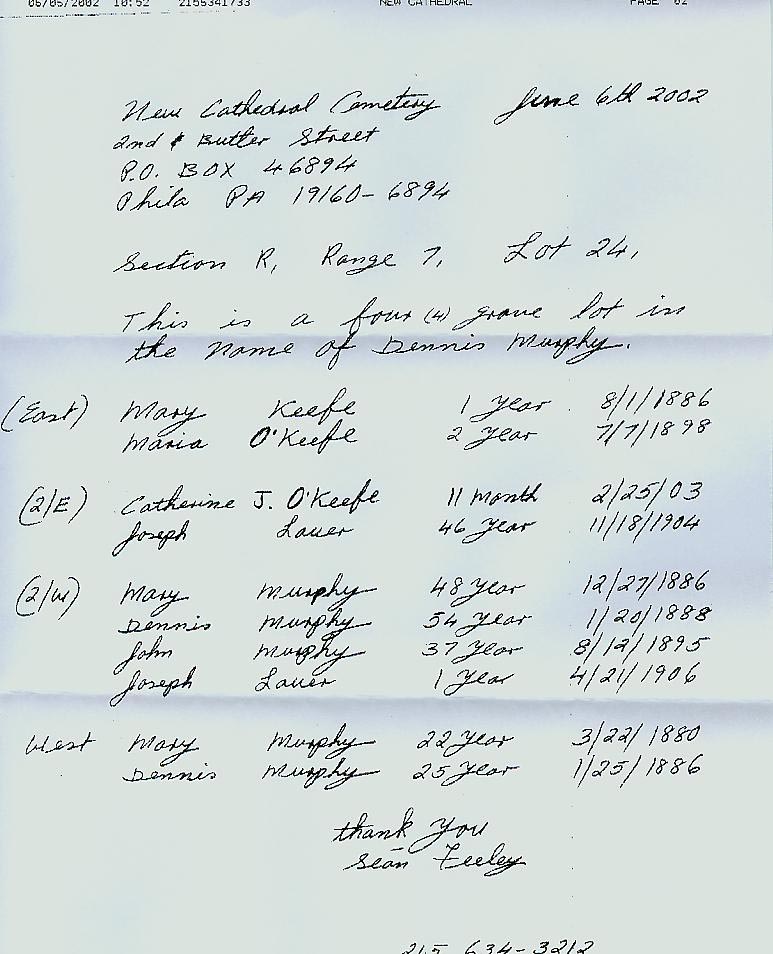 06/05/2002 10:52 2155341733 NEW CATHEDRAL PAGE 02
New Cathedral Cemetery June 6th 2002
2nd & Butter Street
P.O. BOX 46894
Phila PA 19160-6894
Section R, Range 7, Lot 24,
This is a four (4) grave lot in
the name of Dennis Murphy.
(East) Mary Keefe 1 Year 8/1/1886
Maria O'Keefe 2 Year 7/7/1898
(2/E) Catherine J. O'Keefe 11 Month 2/25/03
Joseph Lauer 46 Year 11/18/1904
(2/W) Mary Murphy 48 Year 12/27/1886
Dennis Murphy 54 Year 1/20/1888
John Murphy 37 Year 8/12/1895
Joseph Lauer 1 Year 4/21/1906
West Mary Murphy 22 Year 3/22/1880
Dennis Murphy 25 Year 1/25/1886
thank You
Seán Feeley
215 634-3212